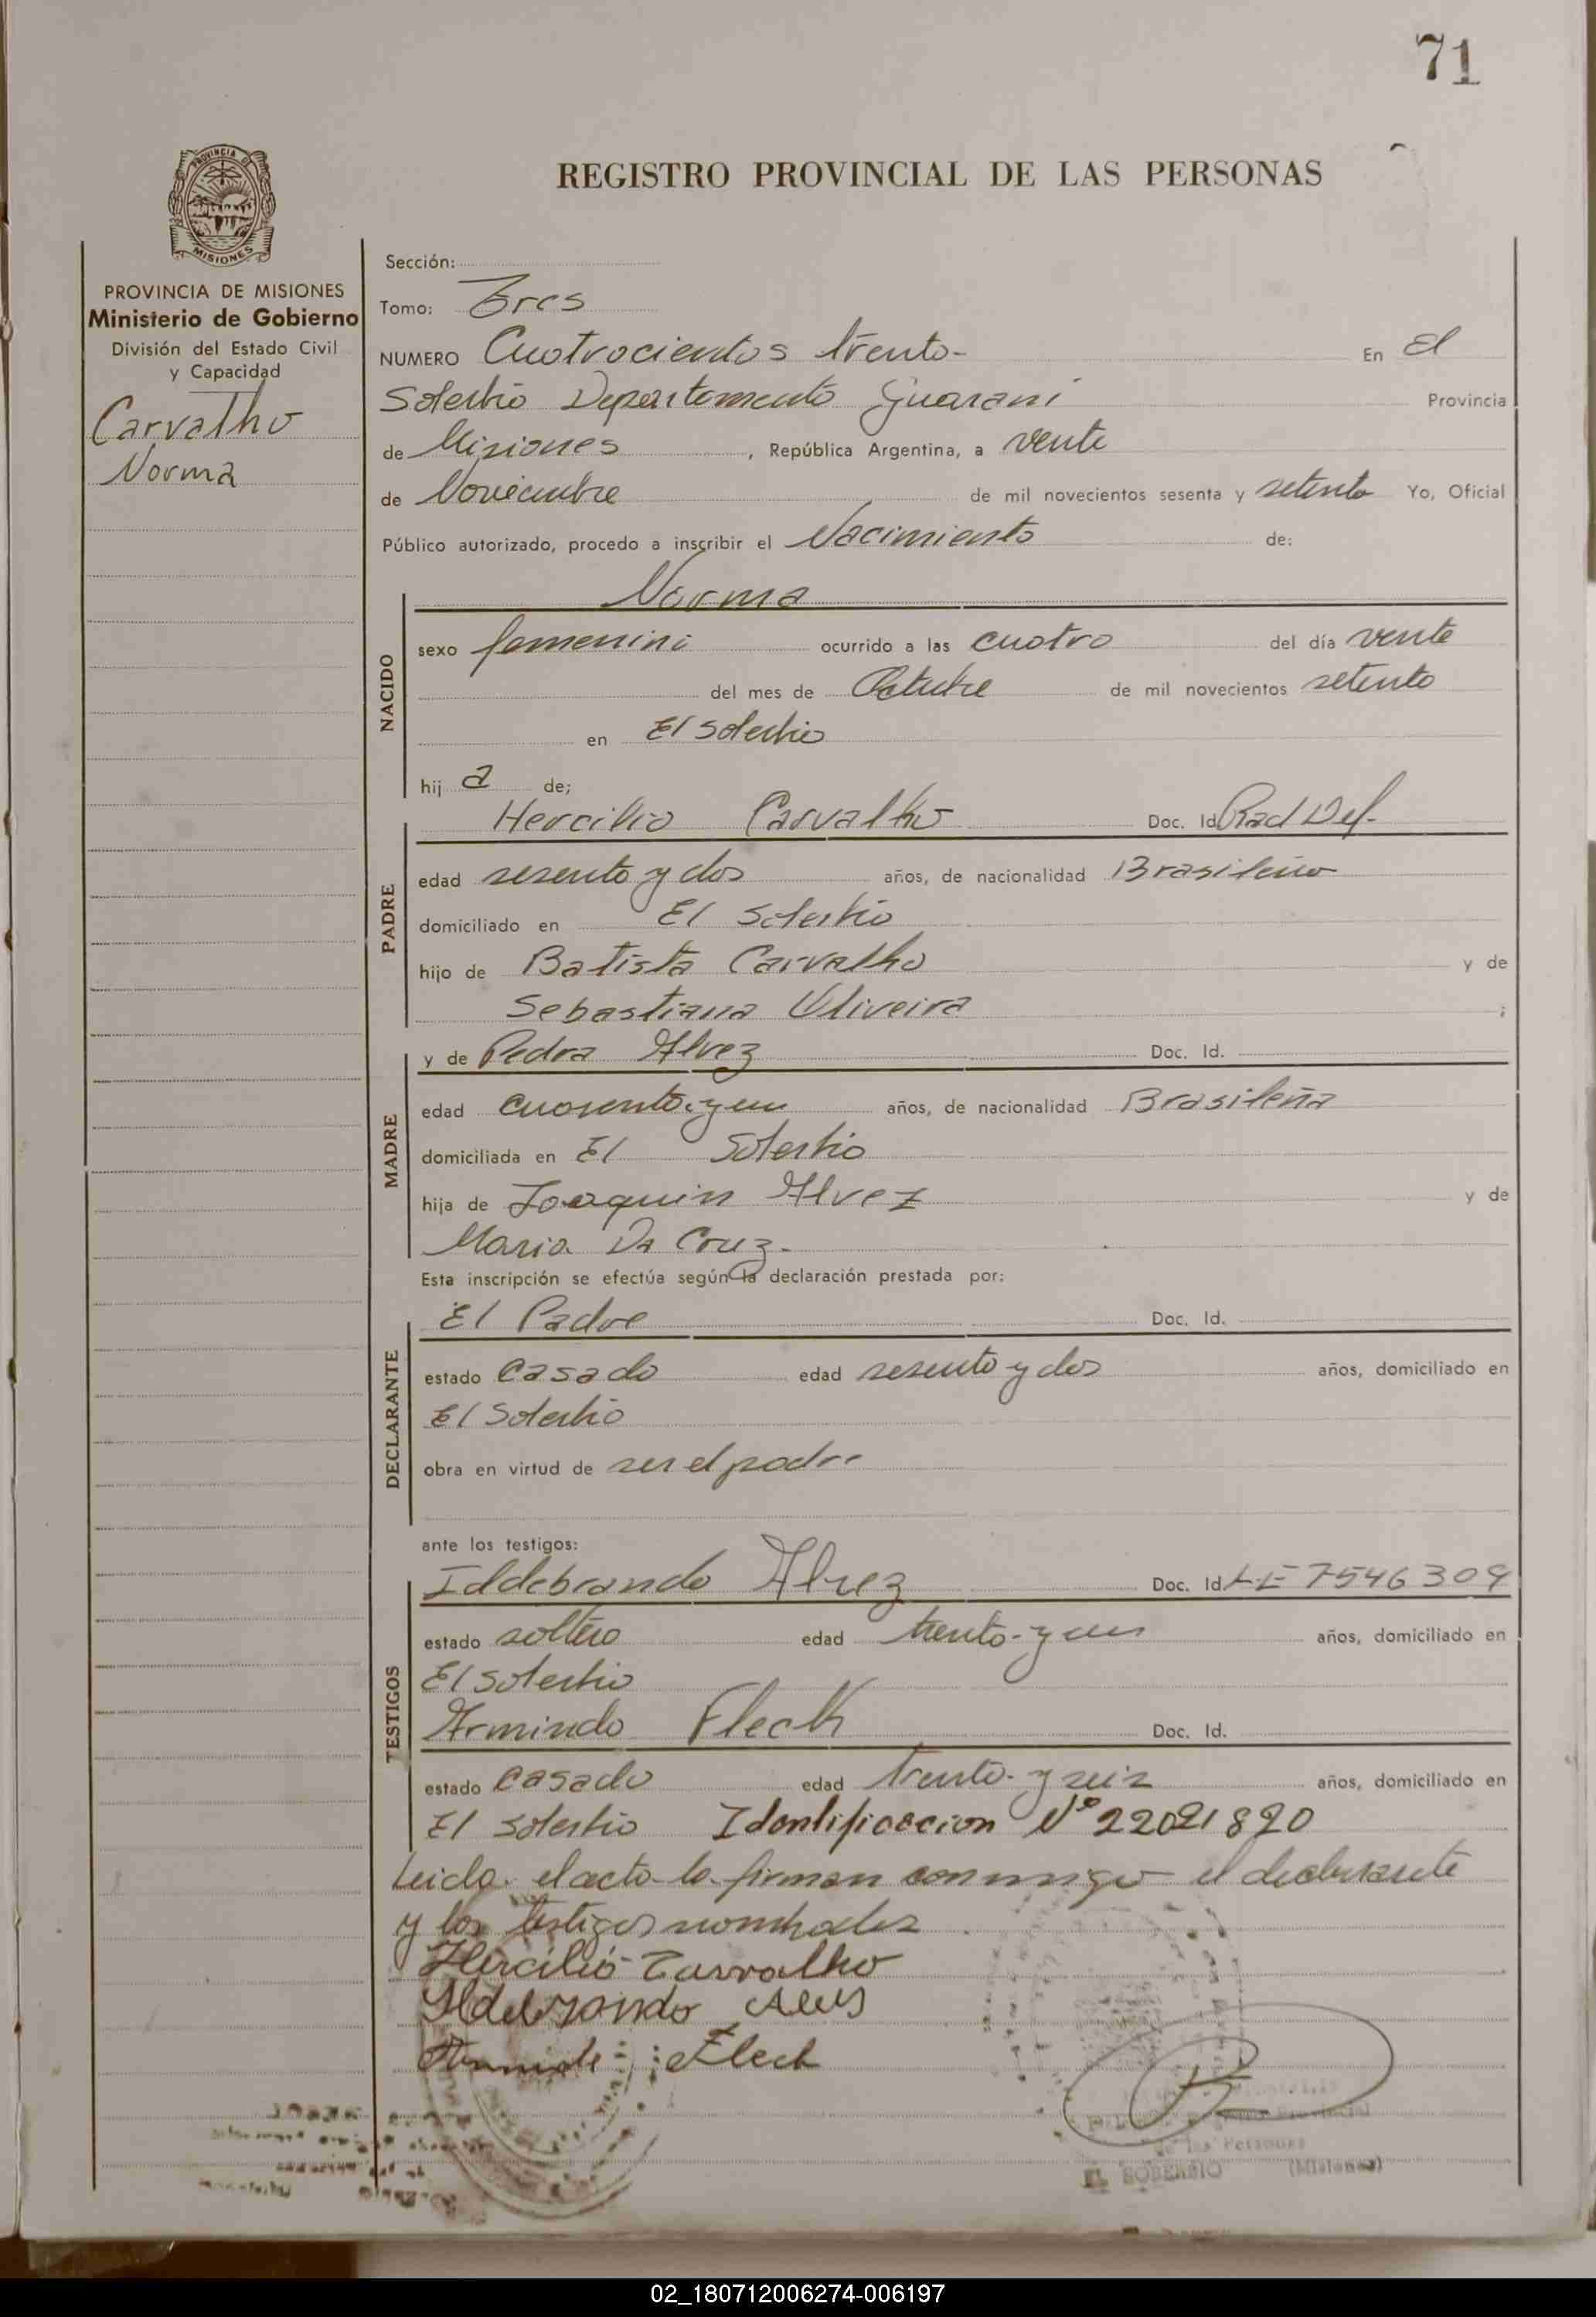 71
REGISTRO PROVINCIAL DE LAS PERSONAS
PROVINCIA DE
MISIONES
PROVINCIA DE MISIONES
Ministerio de Gobierno
División del Estado Civil
y Capacidad
Carvalho
Norma
Sección:
Tomo: Tres
NUMERO Cuatrocientos treinta- En El
Soberbio Departamento Guarani Provincia
de Misiones, República Argentina, a veinte
de Noviembre de mil novecientos sesenta y setenta Yo, Oficial
Público autorizado, procedo a inscribir el Nacimiento de:
Norma
NACIDO
sexo femenino ocurrido a las cuatro del día veinte
del mes de Octubre de mil novecientos setenta
en El Soberbio
hij a de;
Hercilio Carvalho Doc. Id Rad Def.
PADRE
edad sesenta y dos años, de nacionalidad Brasileño
domiciliado en El Soberbio
hijo de Batista Carvalho y de
Sebastiana Oliveira ;
y de Pedra Alvez Doc. Id.
MADRE
edad cuarenta y un años, de nacionalidad Brasileña
domiciliada en El Soberbio
hija de Joaquin Alvez y de
Maria Da Cruz.-
Esta inscripción se efectúa según la declaración prestada por:
El Padre Doc. Id.
DECLARANTE
estado casado edad sesenta y dos años, domiciliado en
El Soberbio
obra en virtud de ser el padre
ante los testigos:
Ildebrando Alvez Doc. Id LE 7546309
TESTIGOS
estado soltero edad treinta y un años, domiciliado en
El Soberbio
Armindo Fleck Doc. Id.
estado casado edad treinta y seis años, domiciliado en
El Soberbio Identificacion Nº 22021820
Leida el acta la firman conmigo el declarante
y los testigos nombrados
Hercilio Carvalho
Ildebrando Alves
Armindo Fleck
de las Personas
EL SOBERBIO (Misiones)
02_180712006274-006197